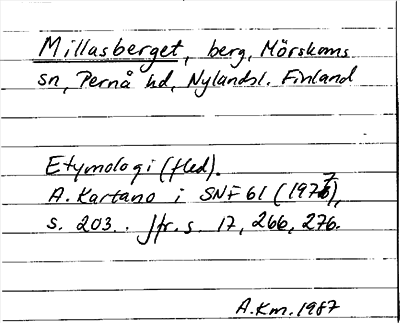 Millasberget, berg, Mörskoms
sn, Pernå hd, Nylandsl. Finland
Etymologi (fled).
A. Kartano i SNF 61 (1977),
s. 203. Jfr. s. 17, 266, 276.
A.Km. 1987